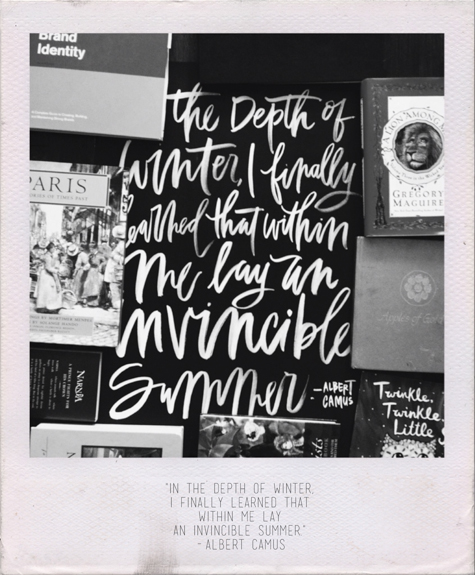 Brand
Identity
the Depth of
winter, I finally
earned that within
me lay an
nvincible
Summer
-ALBERT
CAMUS
PARIS
A LION AMONG
GREGORY
MAGUIRE
NARNIA
Twinkle,
Twinkle,
Little
"IN THE DEPTH OF WINTER,
I FINALLY LEARNED THAT
WITHIN ME LAY
AN INVINCIBLE SUMMER."
- ALBERT CAMUS